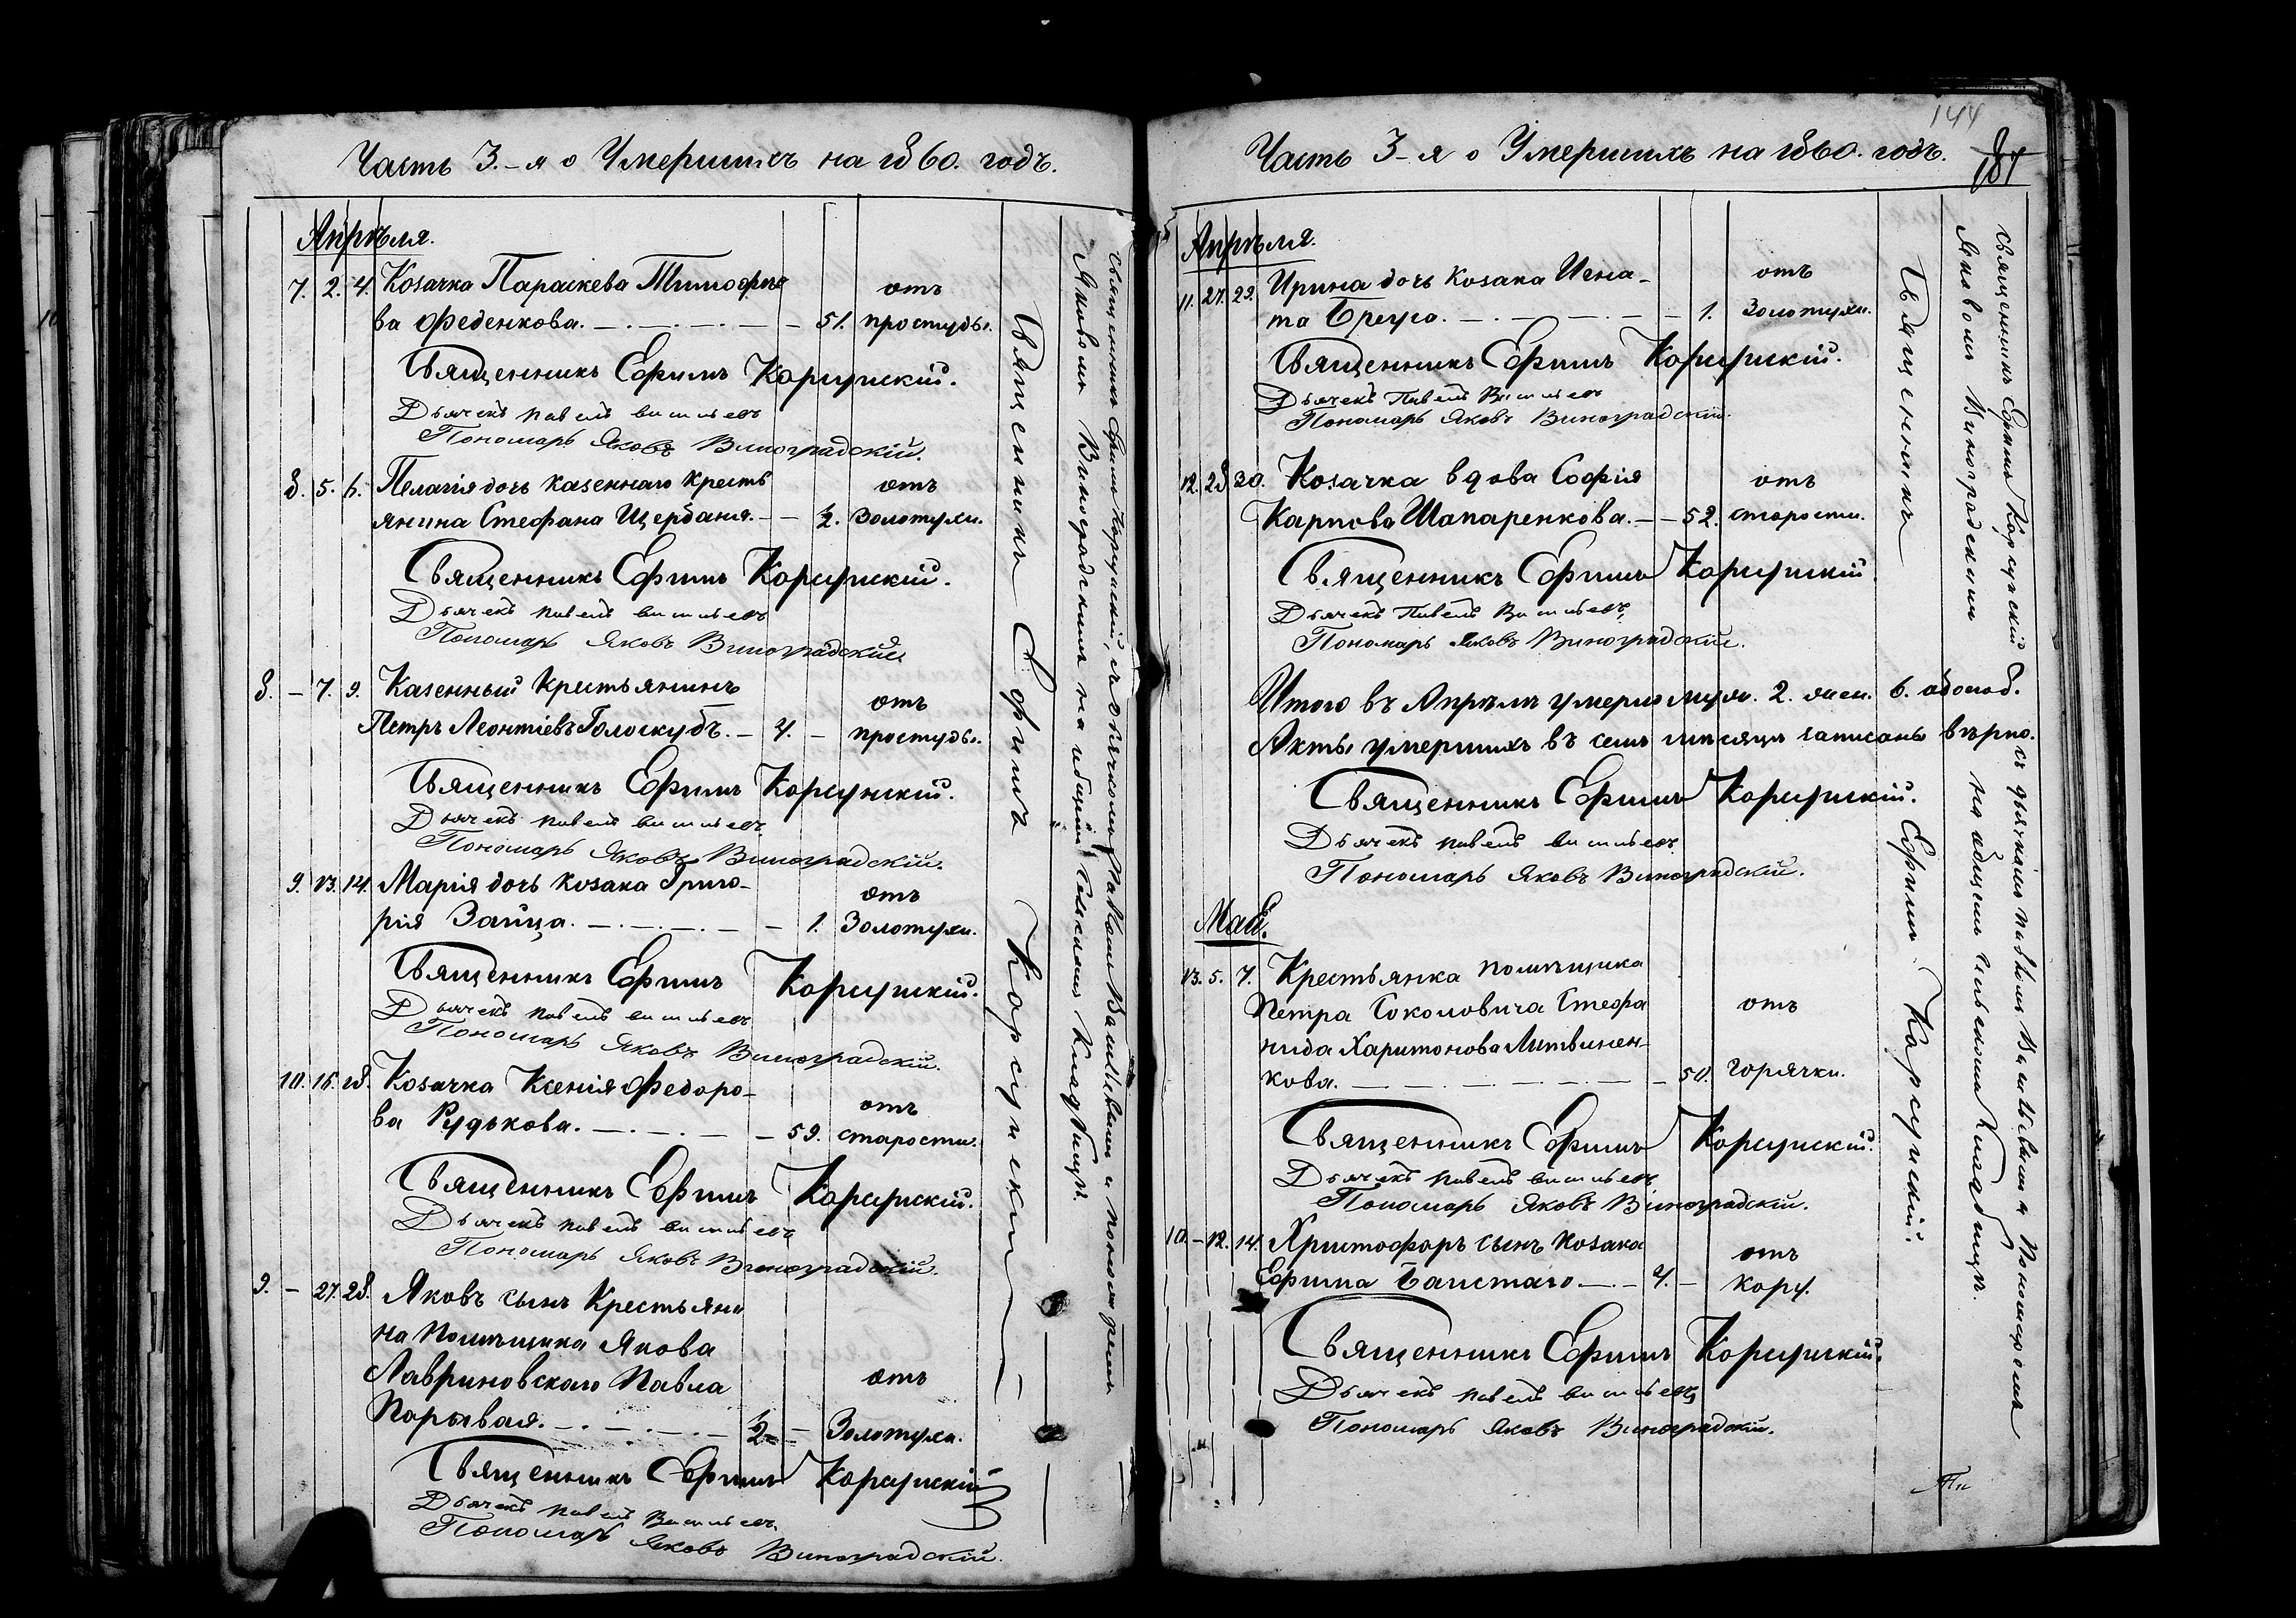 Часть 3.-я о Умершихъ на 1860. годъ.
Апрѣля.
7. 2. 4. Козачка Параскева Тимофее
ва Феденкова. — 51. отъ простуды.
Священникъ Ефимъ Корсунскій.
Дьячекъ Павелъ Васильевъ
Пономарь Яковъ Виноградскій.
8. 5. 6. Пелагія дочь казеннаго кресть
янина Стефана Щербаня. — ½. отъ Золотухи.
Священникъ Ефимъ Корсунскій.
Дьячекъ Павелъ Васильевъ
Пономарь Яковъ Виноградскій.
8. — 7. 9. Казенный Крестьянинъ
Петръ Леонтіевъ Голоскубъ. — 4. — отъ простуды.
Священникъ Ефимъ Корсунскій.
Дьячекъ Павелъ Васильевъ
Пономарь Яковъ Виноградскій.
9. 13. 14. Марія дочь козака Григо-
рія Зайца. — 1. отъ Золотухи.
Священникъ Ефимъ Корсунскій.
Дьячекъ Павелъ Васильевъ
Пономарь Яковъ Виноградскій.
10. 16. 18. Козачка Ксенія Федоро-
ва Рудькова. — 59. отъ старости.
Священникъ Ефимъ Корсунскій.
Дьячекъ Павелъ Васильевъ
Пономарь Яковъ Виноградскій.
9. — 27. 28. Яковъ сынъ Крестьяни
на Помѣщика Якова
Лавриновскаго Павла
Порывая. — ½ — отъ Золотухи.
Священникъ Ефимъ Корсунскій
Дьячекъ Павелъ Васильевъ
Пономарь Яковъ Виноградскій.
Священникъ Ефимъ Корсунскій
Священникъ Ефимъ Корсунскій, съ дьячкомъ Павломъ Васильевымъ и пономаремъ
Яковомъ Виноградскимъ на общемъ сельскомъ кладбищѣ.
144
181
Часть 3-я о Умершихъ на 1860. годъ.
Апрѣля.
11. 27. 29. Ирина дочь козака Игна-
та — 1. отъ Золотухи.
Священникъ Ефимъ Корсунскій.
Дьячекъ Павелъ Васильевъ
Пономарь Яковъ Виноградскій.
12. 28. 30. Козачка вдова Софія
Карпова Шапаренкова. — 52. отъ старости.
Священникъ Ефимъ Корсунскій
Дьячекъ Павелъ Васильевъ
Пономарь Яковъ Виноградскій.
Итого въ Апрѣлѣ умерло муж. 2. жен. 6. обоего.
Акты умершихъ въ семъ мѣсяцѣ записаны вѣрно.
Священникъ Ефимъ Корсунскій.
Дьячекъ Павелъ Васильевъ
Пономарь Яковъ Виноградскій.
Май.
13. 5. 7. Крестьянка помѣщика
Петра Соколовича Стефа
нида Харитонова Литвинен-
кова. — 50. отъ горячки.
Священникъ Ефимъ Корсунскій.
Дьячекъ Павелъ Васильевъ
Пономарь Яковъ Виноградскій.
10. — 12. 14. Христофоръ сынъ козака
Ефима — 4. — отъ кору.
Священникъ Ефимъ Корсунскій.
Дьячекъ Павелъ Васильевъ
Пономарь Яковъ Виноградскій.
Священникъ Ефимъ Корсунскій.
Священникъ Ефимъ Корсунскій съ дьячкомъ Павломъ Васильевымъ и Пономаремъ
Яковомъ Виноградскимъ на общемъ сельскомъ Кладбищѣ.